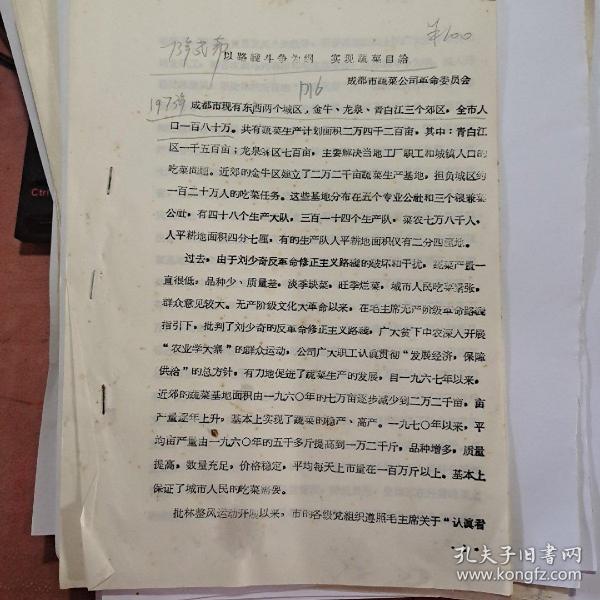 以路线斗争为纲 实现蔬菜自给
成都市蔬菜公司革命委员会
P116
1973年
成都市现有东西两个城区，金牛、龙泉、青白江三个郊区，全市人
口一百八十万。共有蔬菜生产计划面积二万四千二百亩，其中：青白江
区一千五百亩；龙泉区七百亩，主要解决当地工厂职工和城镇人口的
吃菜问题。近郊的金牛区独立了二万二千亩蔬菜生产基地，担负城区约
一百二十万人的吃菜任务。这些基地分布在五个专业公社和三个粮兼菜
公社，有四十八个生产大队，三百一十四个生产队，菜农七万八千人，
人平耕地面积四分七厘，有的生产队人平耕地面积仅有二分四厘地。
过去，由于刘少奇反革命修正主义路线的破坏和干扰，蔬菜产量一
直很低，品种少、质量差，淡季缺菜，旺季烂菜，城市人民吃菜紧张，
群众意见较大。无产阶级文化大革命以来，在毛主席无产阶级革命路线
指引下，批判了刘少奇的反革命修正主义路线，广大贫下中农深入开展
“农业学大寨”的群众运动，公司广大职工认真贯彻“发展经济，保障
供给”的总方针，有力地促进了蔬菜生产的发展，自一九六七年以来，
近郊的蔬菜基地面积由一九六〇年的七万亩逐步减少到二万二千亩，亩
产量逐年上升，基本上实现了蔬菜的稳产、高产。一九七〇年以来，平
均亩产量由一九六〇年的五千多斤提高到一万二千斤，品种增多，质量
提高，数量充足，价格稳定，平均每天上市量在一百万斤以上。基本上
保证了城市人民的吃菜需要。
批林整风运动开展以来，市的各级党组织遵照毛主席关于“认真看
Ctrl
孔夫子旧书网
www.kongfz.com